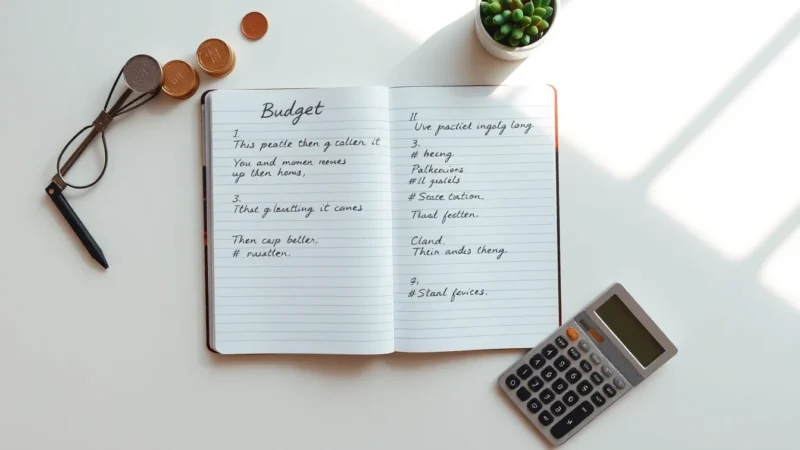 Budget
1.
This peatle then g callen it
You and monen neeves
up then hems,
3.
That gleutting it cames
Then cap beller.
# nusatten.
11
Uve practiel ingoly long.
3.
# being
# 11
# State tation.
Thual fectten.
Cland.
Thein andes theng.
9.
# Stanl fevices.